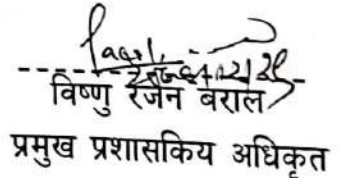 विष्णु रंजन बराल
प्रमुख प्रशासकिय अधिकृत